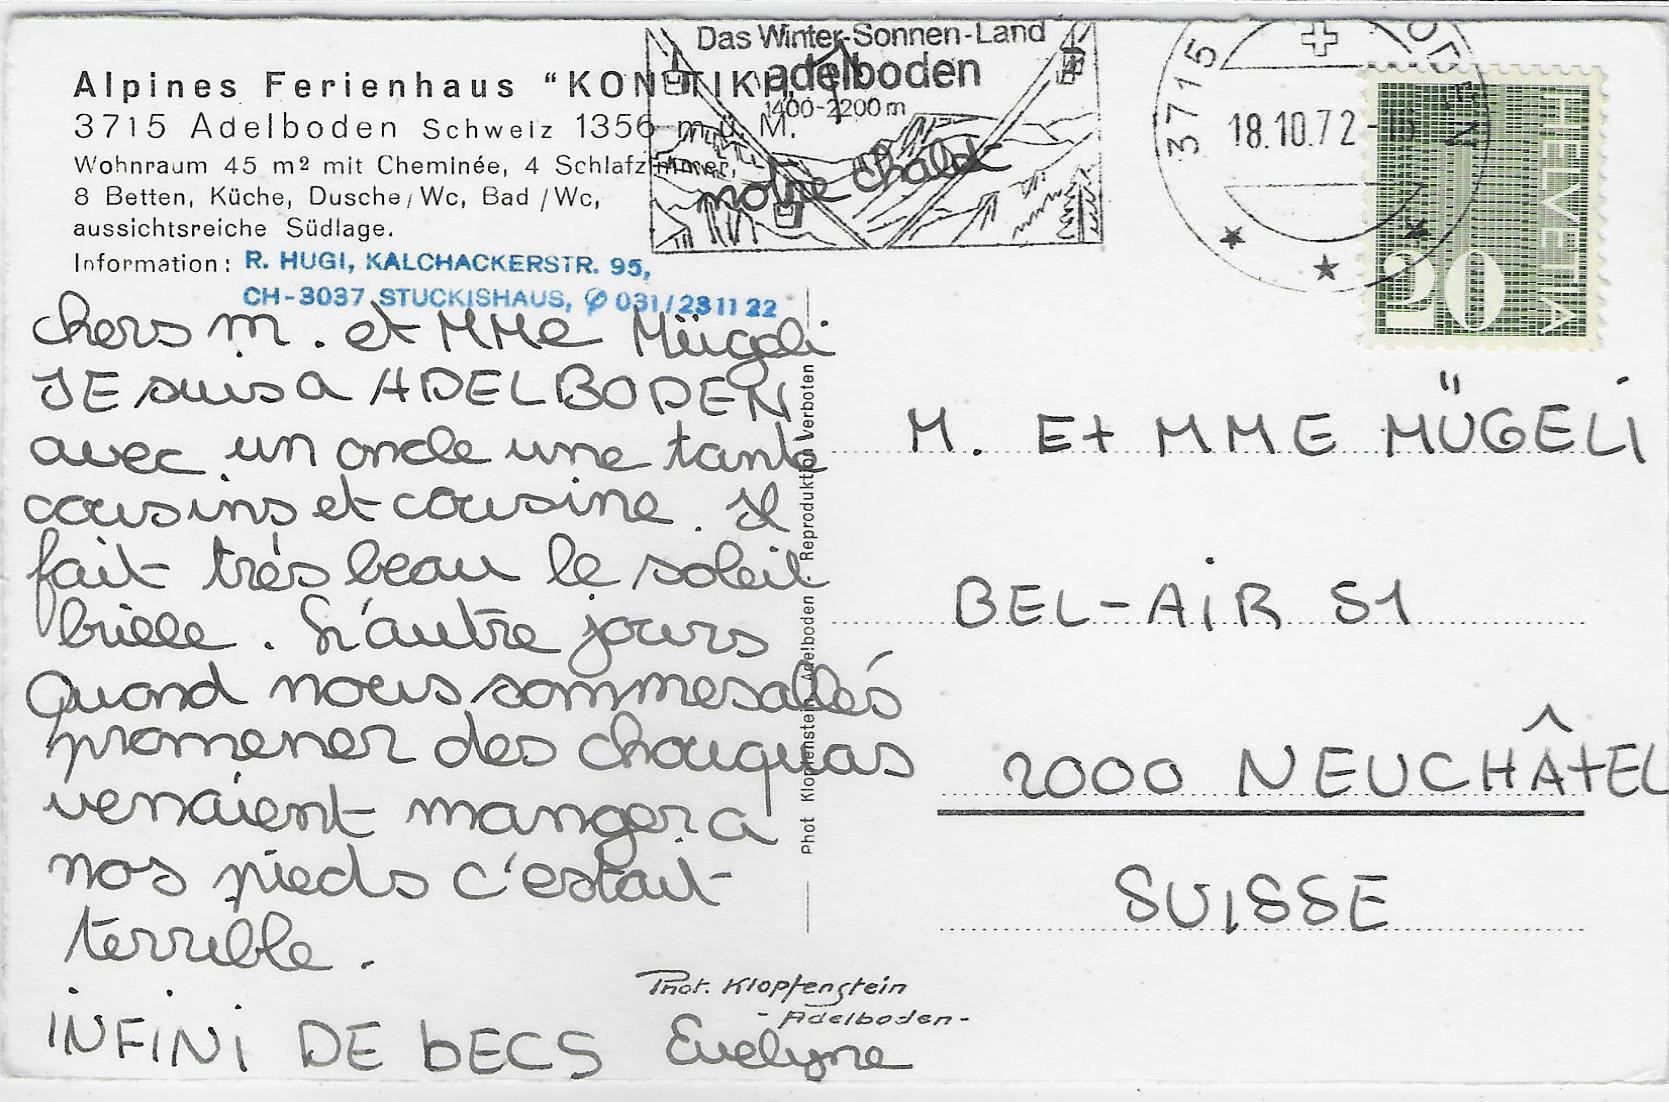 Alpines Ferienhaus "KON-TIKI"
3715 Adelboden Schweiz 1356 m.ü.M.
Wohnraum 45 m² mit Cheminée, 4 Schlafzimmer,
8 Betten, Küche, Dusche/Wc, Bad/Wc,
aussichtsreiche Südlage.
Information: R. HUGI, KALCHACKERSTR. 95,
CH-3037 STUCKISHAUS, ✆ 031/231122
Das Winter-Sonnen-Land
adelboden
1400-2200 m
notre chalet
3715 ADELBODEN
18.10.72
HELVETIA
20
chers m. et MMe Mügeli
JE suis a ADELBODEN
avec un oncle une tante
cousins et cousine. Il
fait très beau le soleil
brille. L'autre jours
quand nous sommes allés
promener des chouquas
venaient manger a
nos pieds c'estait
terrible.
INFINI DE bECS Evelyne
Phot Klopfenstein, Adelboden. Reproduktion verboten
Phot. Klopfenstein
- Adelboden -
M. Et MME MÜGELI
BEL-AiR 51
2000 NEUCHÂtEL
SUISSE